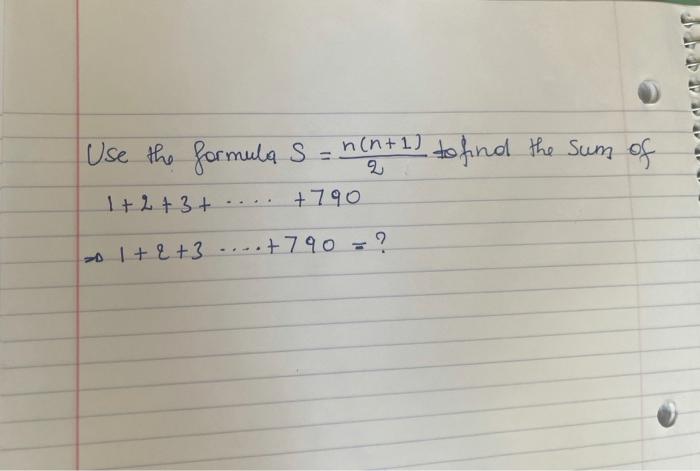 Use the formula S = n(n+1)/2 to find the sum of
1+2+3+ .... +790
⇒ 1+2+3 ....+790 = ?